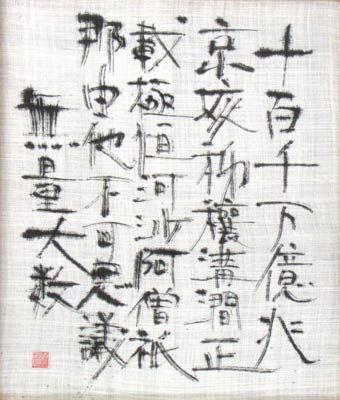 十百千万億兆
京亥秭穣溝澗正
載極恒河沙阿僧祇
那由他不可思議
無量大数